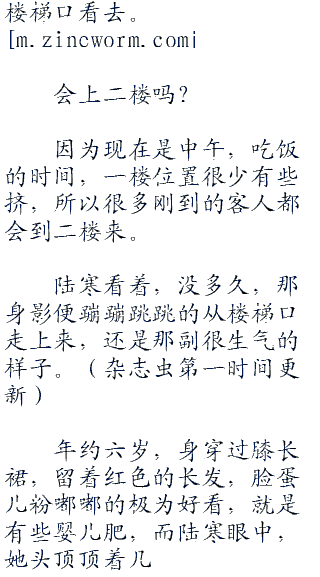 楼梯口看去。
[m.zincworm.com]
会上二楼吗？
因为现在是中午，吃饭
的时间，一楼位置很少有些
挤，所以很多刚到的客人都
会到二楼来。
陆寒看着，没多久，那
身影便蹦蹦跳跳的从楼梯口
走上来，还是那副很生气的
样子。（杂志虫第一时间更
新）
年约六岁，身穿过膝长
裙，留着红色的长发，脸蛋
儿粉嘟嘟的极为好看，就是
有些婴儿肥，而陆寒眼中，
她头顶顶着几